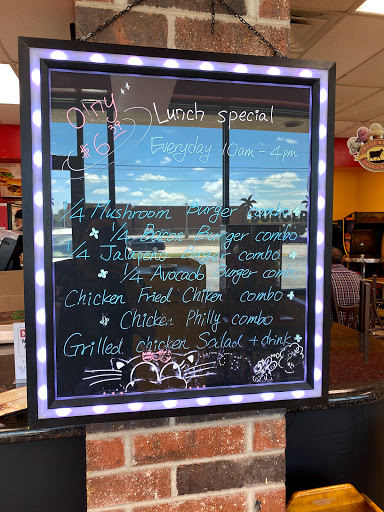 Only
$6.39
Lunch special
Everyday 10am - 4pm
1/4 Mushroom Burger combo
1/4 Bacon Burger combo
1/4 Jalapeno Burger combo
1/4 Avocado Burger combo
Chicken Fried Chiken combo
Chicken Philly combo
Grilled chicken Salad + drink